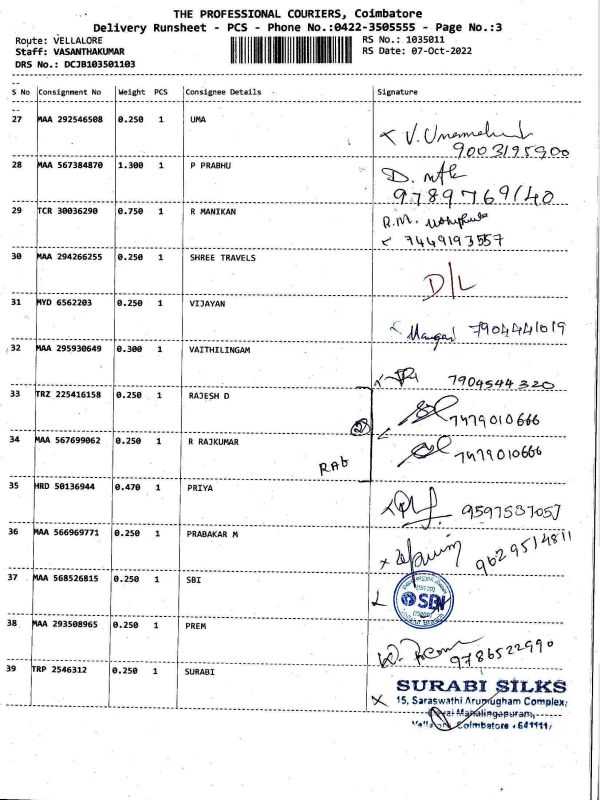 THE PROFESSIONAL COURIERS, Coimbatore
Delivery Runsheet - PCS - Phone No.:0422-3505555 - Page No.:3
Route: VELLALORE RS No.: 1035011
Staff: VASANTHAKUMAR RS Date: 07-Oct-2022
DRS No.: DCJB103501103
S No Consignment No Weight PCS Consignee Details Signature
27 MAA 292546508 0.250 1 UMA
9003195900
28 MAA 567384870 1.300 1 P PRABHU
9789769140
29 TCR 30036290 0.750 1 R MANIKAN R.M.
7449193557
30 MAA 294266255 0.250 1 SHREE TRAVELS
D/L
31 MYD 6562203 0.250 1 VIJAYAN
7904441019
32 MAA 295930649 0.300 1 VAITHILINGAM
7904544320
33 TRZ 225416158 0.250 1 RAJESH D
② 7479010666
34 MAA 567699062 0.250 1 R RAJKUMAR
7479010666
35 HRD 50136944 0.470 1 PRIYA
9597537057
36 MAA 566969771 0.250 1 PRABAKAR M
9629514811
37 MAA 568526815 0.250 1 SBI
SBI
38 MAA 293508965 0.250 1 PREM
9786522990
39 TRP 2546312 0.250 1 SURABI
SURABI SILKS
15, Saraswathi Arumugham Complex,
Mahalingapuram,
Coimbatore - 641111